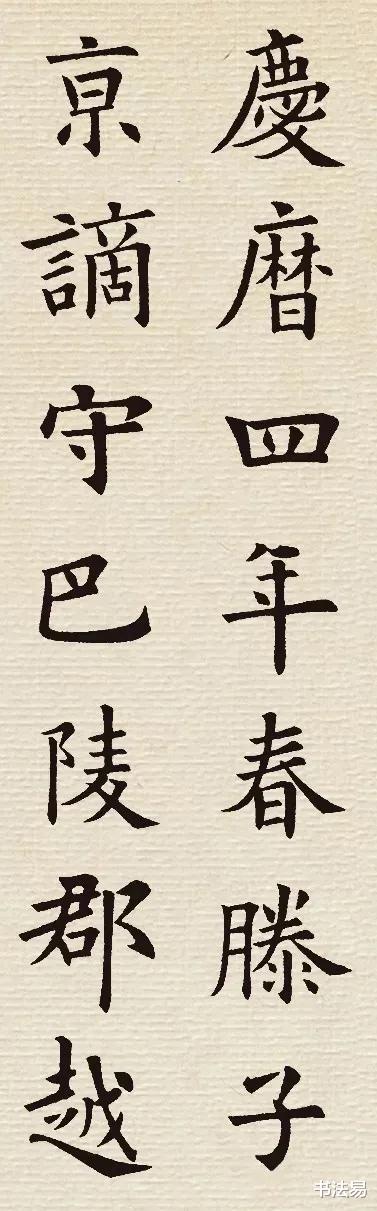 慶曆四年春滕子
京謫守巴陵郡越
书法易